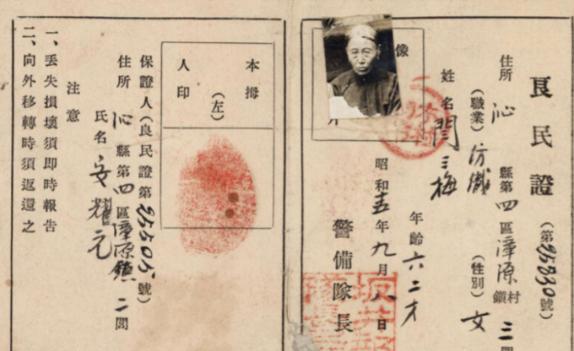 良民證 (第25330號)
住所 沁縣第四區漳源鎮村三閭
(職業) 紡織 (性別) 女
姓名 閆三梅 年齡六二才
像片
昭和十五年九月八日
警備隊長
本人拇印 (左)
保證人(良民證第25505號)
住所 沁縣第四區漳源鎮二閭
氏名 安耀元
注意
一、丟失損壞須即時報告
二、向外移轉時須返還之